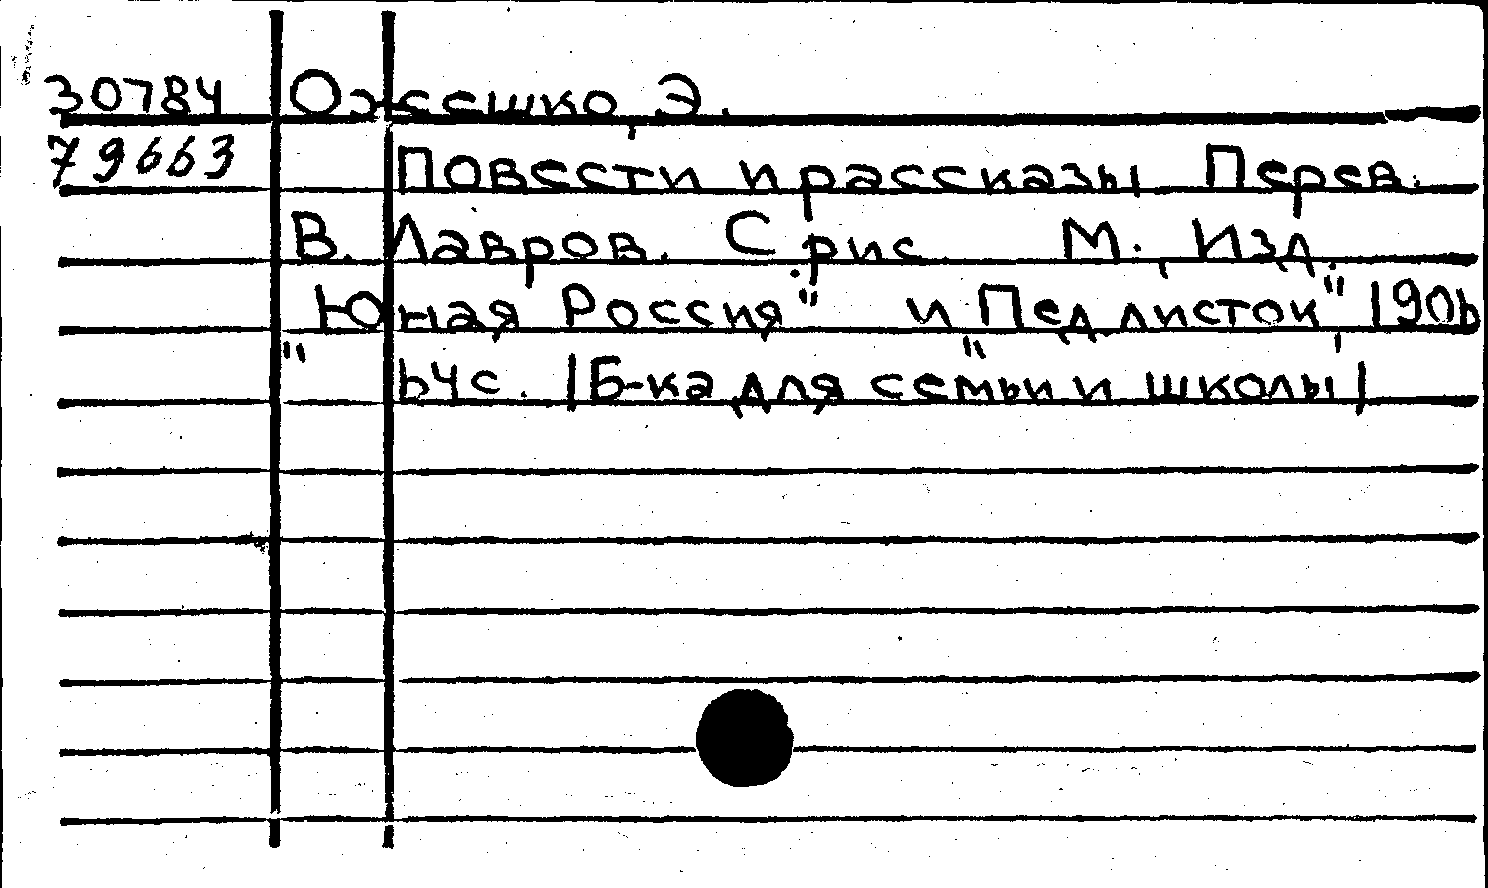 30784 Ожешко, Э.
79663 Повести и рассказы. Перев.
В. Лавров. С рис. М., Изд.
"Юная Россия" и "Пед. листок", 1906
64с. /Б-ка для семьи и школы/